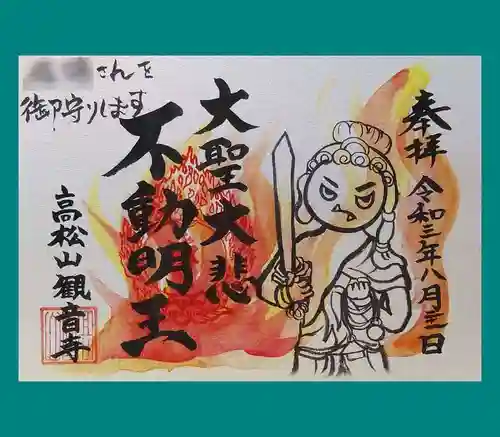 奉拝 令和三年八月
日
大聖大悲
不動明王
さんを
御守りします
高松山観音寺